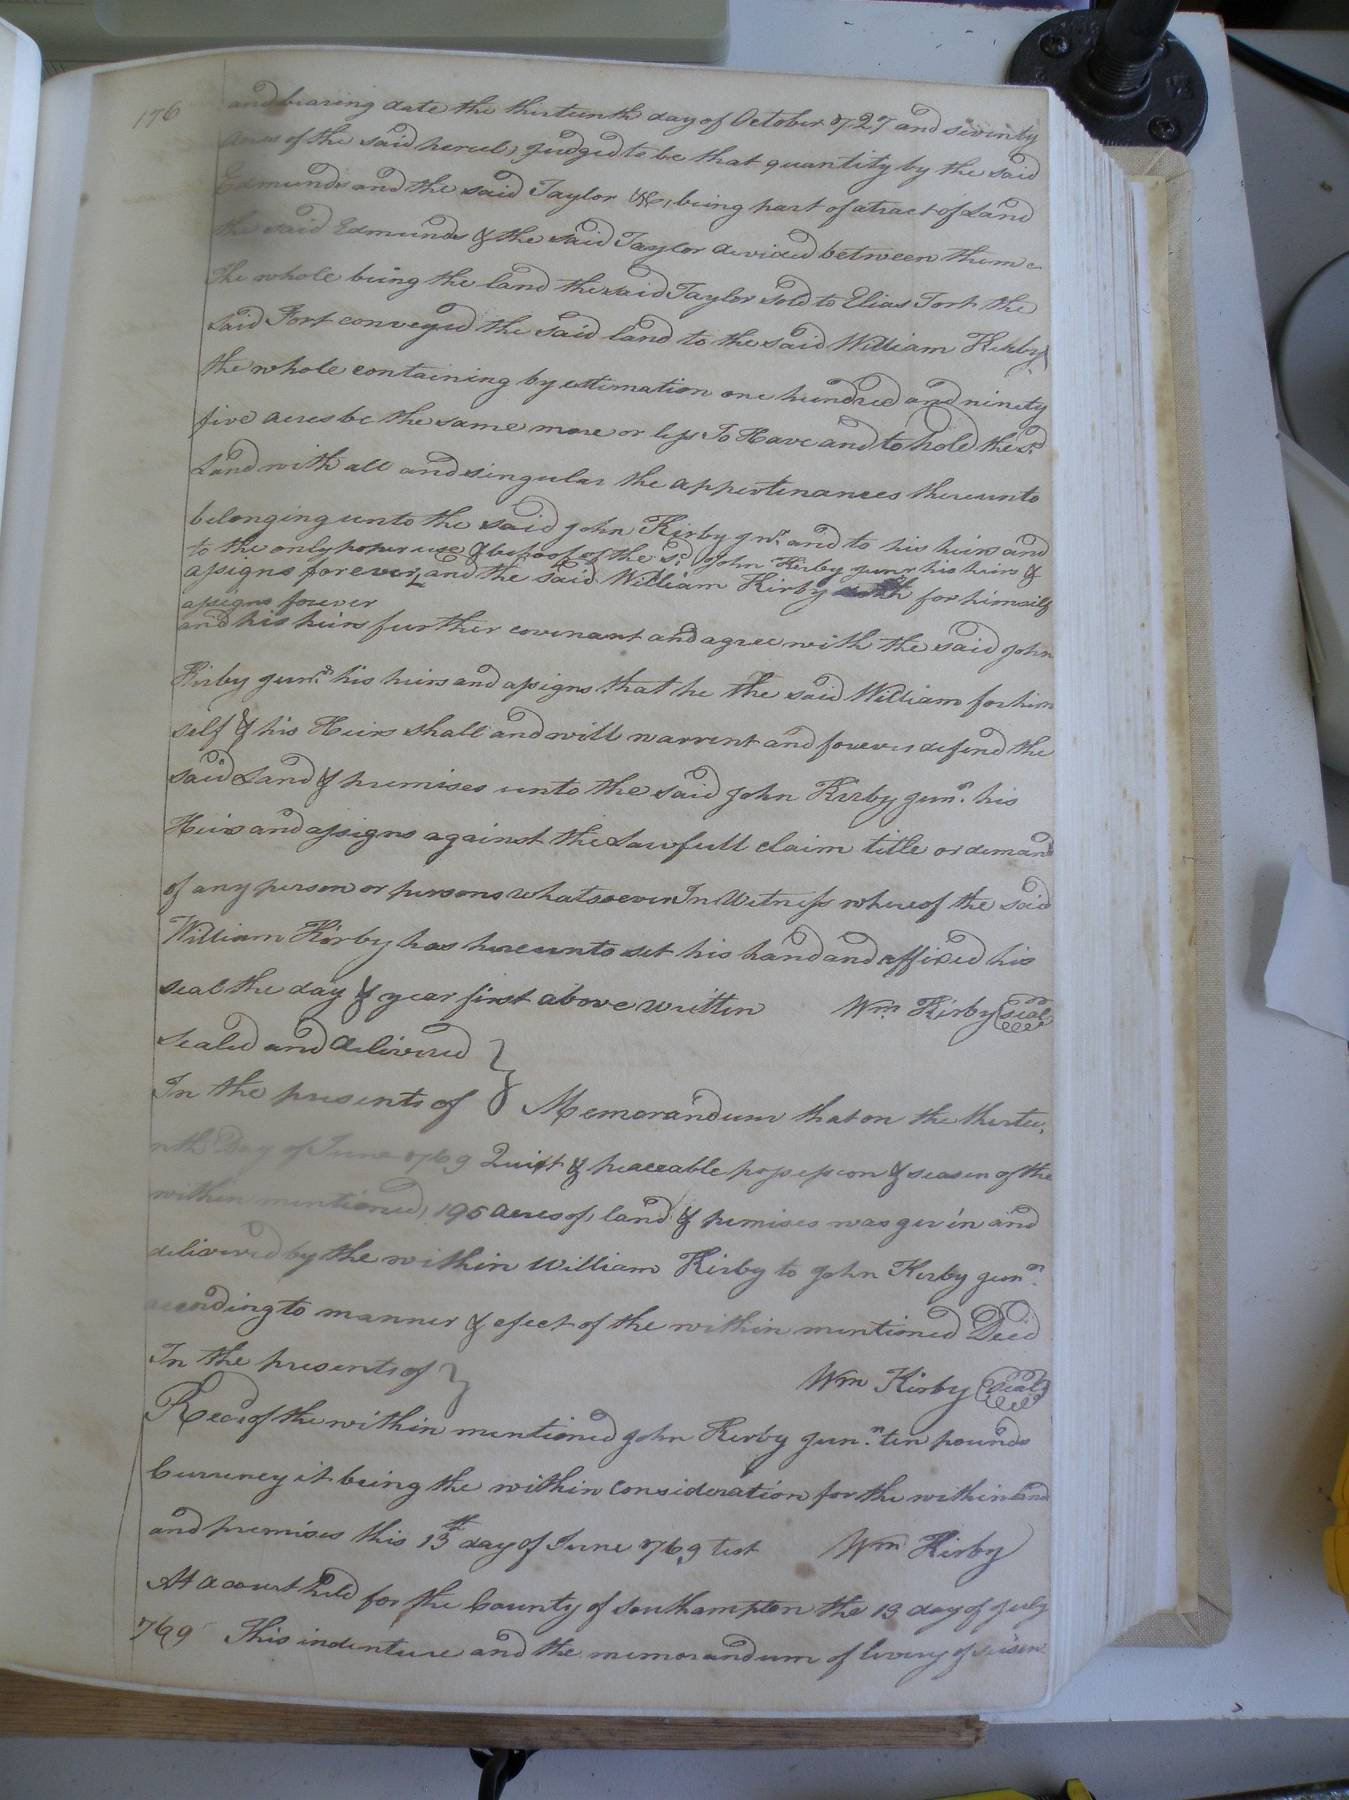 176
and bearing date the thirteenth day of October 1727 and seventy
Acres of the said hereel, judged to be that quantity by the said
Edmunds and the said Taylor &c, being part of a tract of Land
the said Edmunds & the said Taylor devided between them
The whole being the land the said Taylor sold to Elias Fort the
said Fort conveyed the said land to the said William Kirby
the whole containing by estimation one hundred and ninety
five acres be the same more or less To Have and to hold the sd.
Land with all and singular the appertinances thereunto
belonging unto the said John Kirby junr. and to his heirs and
to the only proper use & behoof of the sd. John Kirby junr his heirs &
assigns forever and the said William Kirby doth for himself
assigns forever
and his heirs further covenant and agree with the said John
Kirby junr. his heirs and assigns that he the said William for him
self & his Heirs shall and will warrent and forever defend the
said Land & premises unto the said John Kirby junr. his
Heirs and assigns against the Lawfull claim title or demand
of any person or persons whatsoever In Witness whereof the said
William Kirby has hereunto set his hand and affixed his
seal the day & year first above written Wm. Kirby (seal)
Sealed and delivered
In the presents of } Memorandum that on the thirtee
nth Day of June 1769 Quiet & peaceable possession & seasen of the
within mentioned, 195 acres of land & premises was given and
delivered by the within William Kirby to John Kirby junr.
according to manner & efect of the within mentioned Deed
In the presents of } Wm Kirby (seal)
Recd. of the within mentioned John Kirby junr. ten pounds
Currency it being the within consideration for the within land
and premises this 13th day of June 1769 test Wm Kirby
At a court held for the County of Southampton the 13 day of July
1769 This indenture and the memorandum of livery of seisen